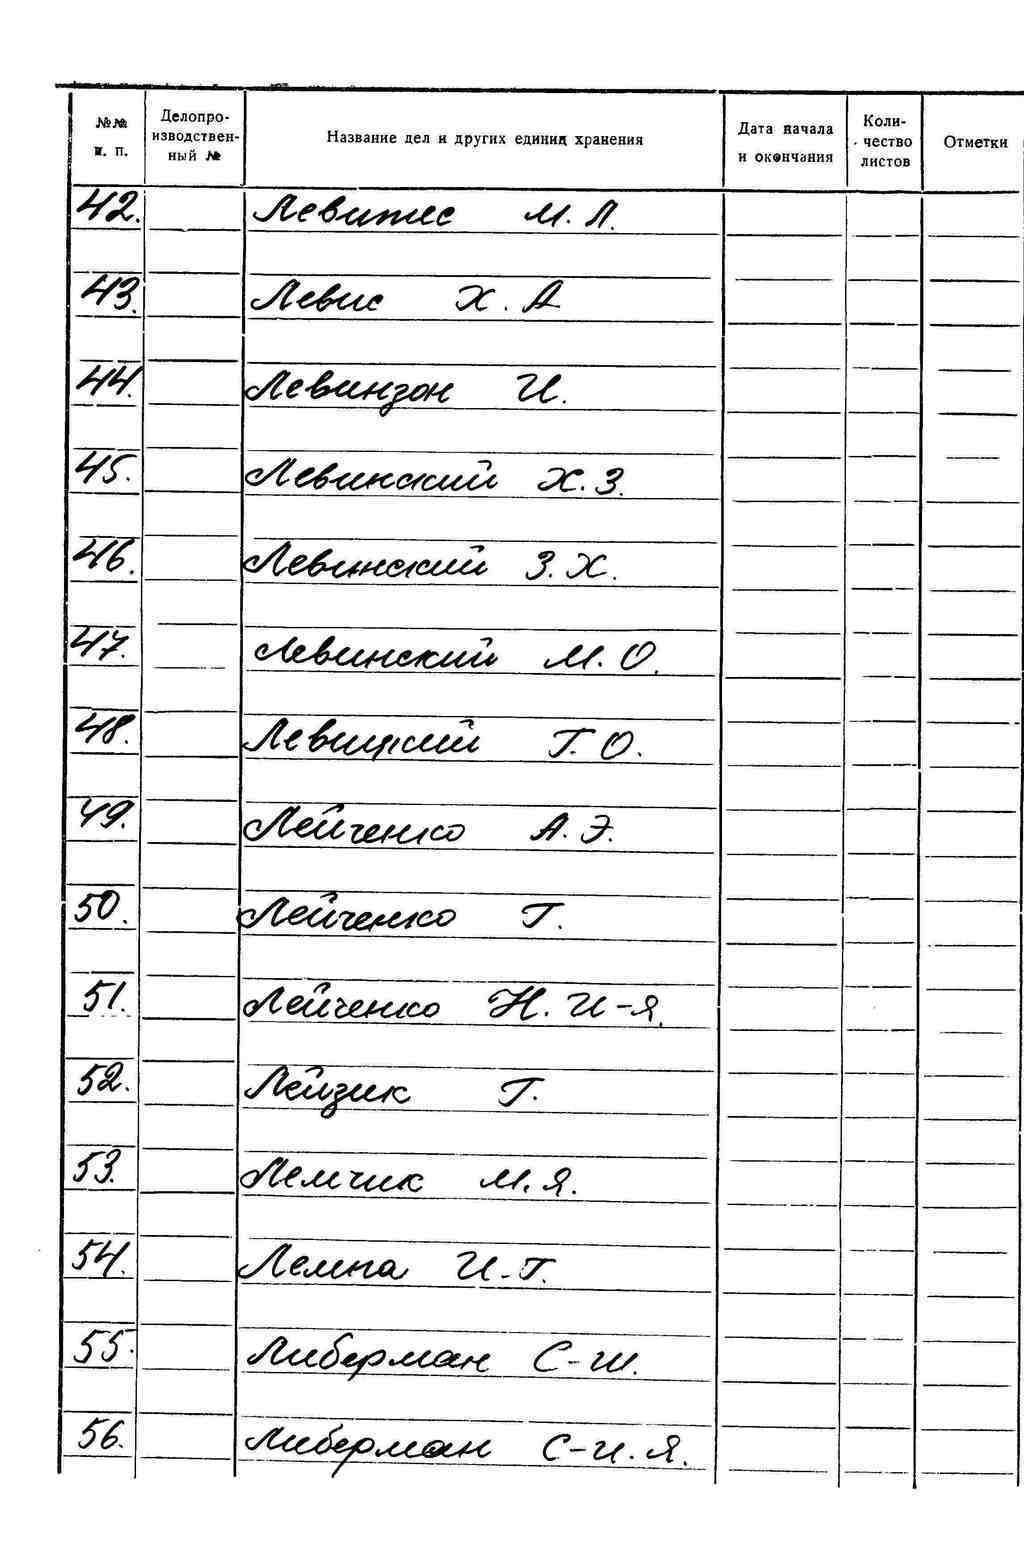 №№ п. п. Делопроизводственный № Название дел и других единиц хранения Дата начала и окончания Количество листов Отметки
42. Левитес М. Л.
43. Левис Х. А
44. Левинзон И.
45. Левинский Х. З.
46. Левинский З. Х.
47. Левинский М. О.
48. Левицкий Г. О.
49. Лейченко А. Э.
50. Лейченко Г.
51. Лейченко Н. И-Я.
52. Лейзик Г.
53. Лемчик М. Я.
54. Лемпа И. Г.
55. Либерман С-Ш.
56. Либерман С-И. Я.